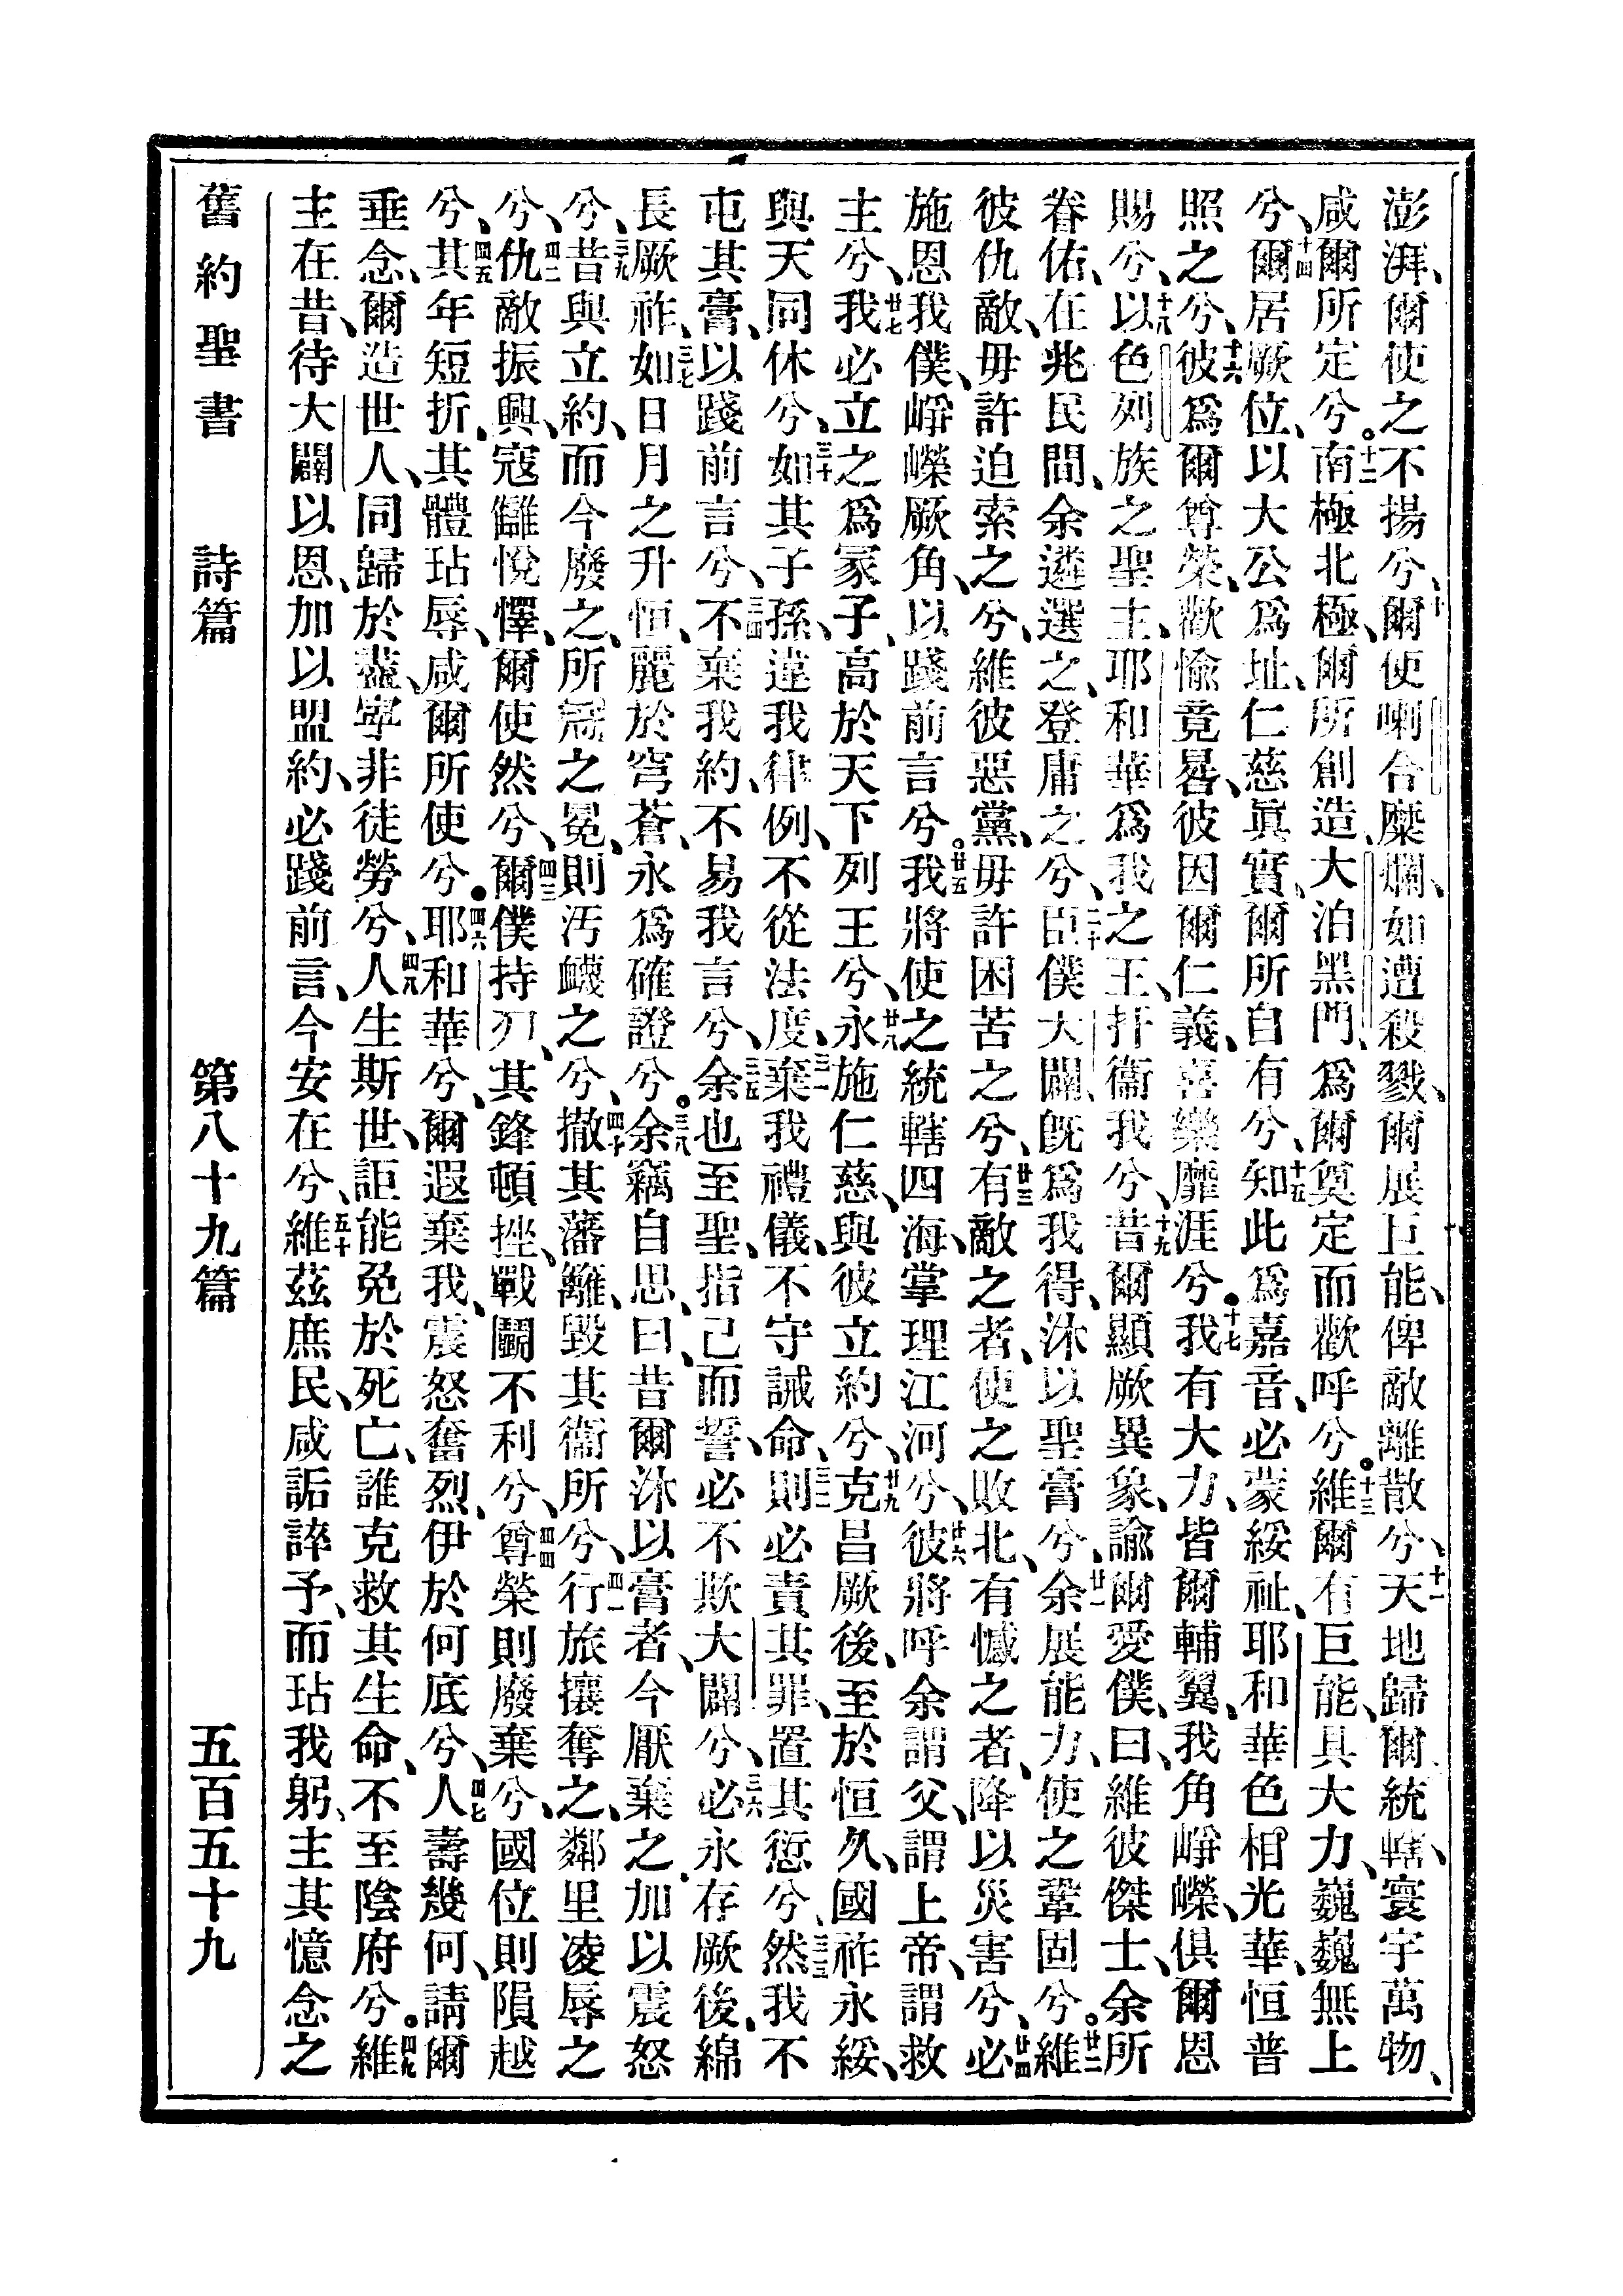 澎湃、爾使之不揚兮、十爾使喇合糜爛、如遭殺戮、爾展巨能、俾敵離散兮、十一天地歸爾統轄、寰宇萬物、
咸爾所定兮。十二南極北極、爾所創造、大泊黑門、爲爾奠定而歡呼兮。十三維爾有巨能、具大力、巍巍無上
兮、十四爾居厥位、以大公爲址、仁慈眞實、爾所自有兮、十五知此爲嘉音、必蒙綏祉、耶和華色相光華、恒普
照之兮、十六彼爲爾尊榮、歡愉竟晷、彼因爾仁義、喜樂靡涯兮。十七我有大力、皆爾輔翼、我角崢嶸、俱爾恩
賜兮、十八以色列族之聖主、耶和華爲我之王、扞衞我兮、十九昔爾顯厥異象、諭爾愛僕、曰、維彼傑士、余所
眷佑、在兆民間、余遴選之、登庸之兮、二十臣僕大闢、旣爲我得、沐以聖膏兮、廿一余展能力、使之鞏固兮。廿二維
彼仇敵、毋許迫索之兮、維彼惡黨、毋許困苦之兮、廿三有敵之者、使之敗北、有憾之者、降以災害兮、廿四必
施恩我僕、崢嶸厥角、以踐前言兮。廿五我將使之統轄四海、掌理江河兮、廿六彼將呼余謂父、謂上帝、謂救
主兮、廿七我必立之爲冢子、高於天下列王兮、廿八永施仁慈、與彼立約兮、廿九克昌厥後、至於恒久、國祚永綏、
與天同休兮、三十如其子孫、違我律例、不從法度、三一棄我禮儀、不守誡命、三二則必責其罪、置其愆兮、三三然我不
屯其膏、以踐前言兮、三四不棄我約、不易我言兮、三五余也至聖、指己而誓、必不欺大闢兮、三六必永存厥後、綿
長厥祚、三七如日月之升恒、麗於穹蒼、永爲確證兮。三八余竊自思、曰、昔爾沐以膏者、今厭棄之、加以震怒
兮、三九昔與立約、而今廢之、所冠之冕、則汚衊之兮、四十撤其藩籬、毀其衞所兮、四一行旅攘奪之、鄰里凌辱之
兮、四二仇敵振興、寇讎悅懌、爾使然兮、四三爾僕持刃、其鋒頓挫、戰鬬不利兮、四四尊榮則廢棄兮、國位則隕越
兮、四五其年短折、其體玷辱、咸爾所使兮。四六耶和華兮、爾遐棄我、震怒奮烈、伊於何底兮、四七人壽幾何、請爾
垂念、爾造世人、同歸於盡、寧非徒勞兮、四八人生斯世、詎能免於死亡、誰克救其生命、不至陰府兮。四九維
主在昔、待大闢以恩、加以盟約、必踐前言、今安在兮、五十維茲庶民、咸詬誶予、而玷我躬、主其憶念之
舊約聖書　詩篇　第八十九篇　五百五十九